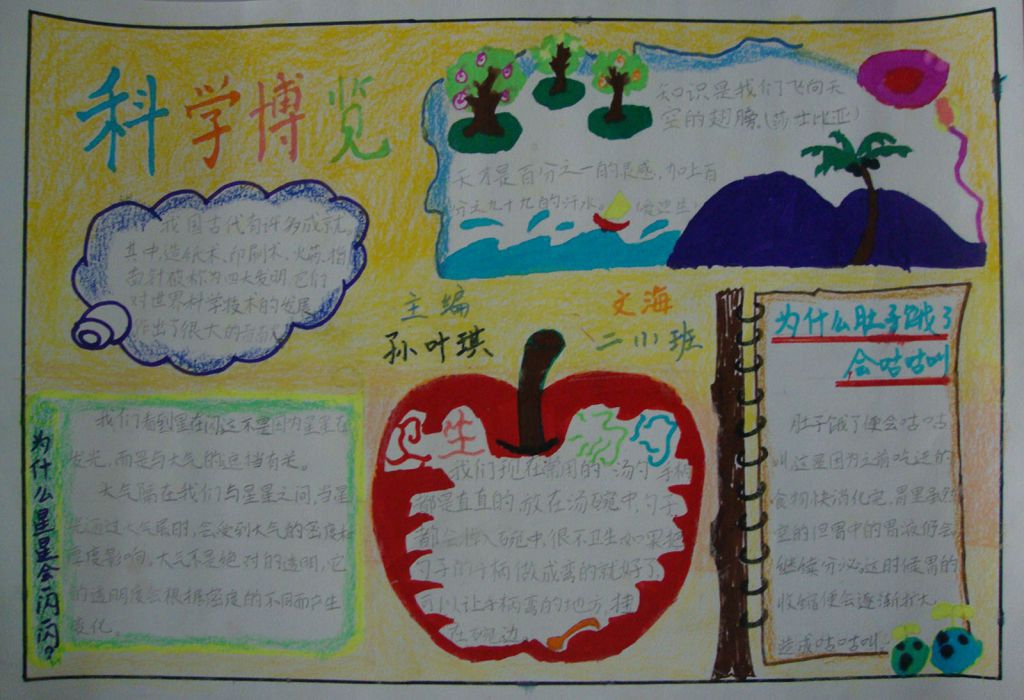 科学博览
我国古代有许多成就。
其中造纸术、印刷术、火药、指
南针被称为四大发明,它们
对世界科学技术的发展
作出了很大的贡献。
知识是我们飞向天
空的翅膀。(莎士比亚)
天才是百分之一的灵感,加上百
分之九十九的汗水。
主编
孙叶琪
文海
二小班
为什么星星会闪闪?
我们看到星在闪,这不是因为星星在
发光,而是与大气的遮挡有关。
大气隔在我们与星星之间,当星
光通过大气层时,会受到大气的密度和
程度影响,大气不是绝对的透明,它
的透明度会根据密度的不同而产生
变化。
卫生汤勺
我们现在常用的汤勺手柄
都是直直的,放在汤碗中,勺子
都会掉入碗中,很不卫生,如果把
勺子的手柄做成弯的就好了,
可以让手柄弯的地方,挂
在碗边。
为什么肚子饿了
会咕咕叫
肚子饿了便会咕咕
叫,这是因为之前吃进的
食物快消化完,胃里虽然
空的,但胃中的胃液仍会
继续分泌,这时候胃的
收缩便会逐渐扩大,
造成咕咕叫。